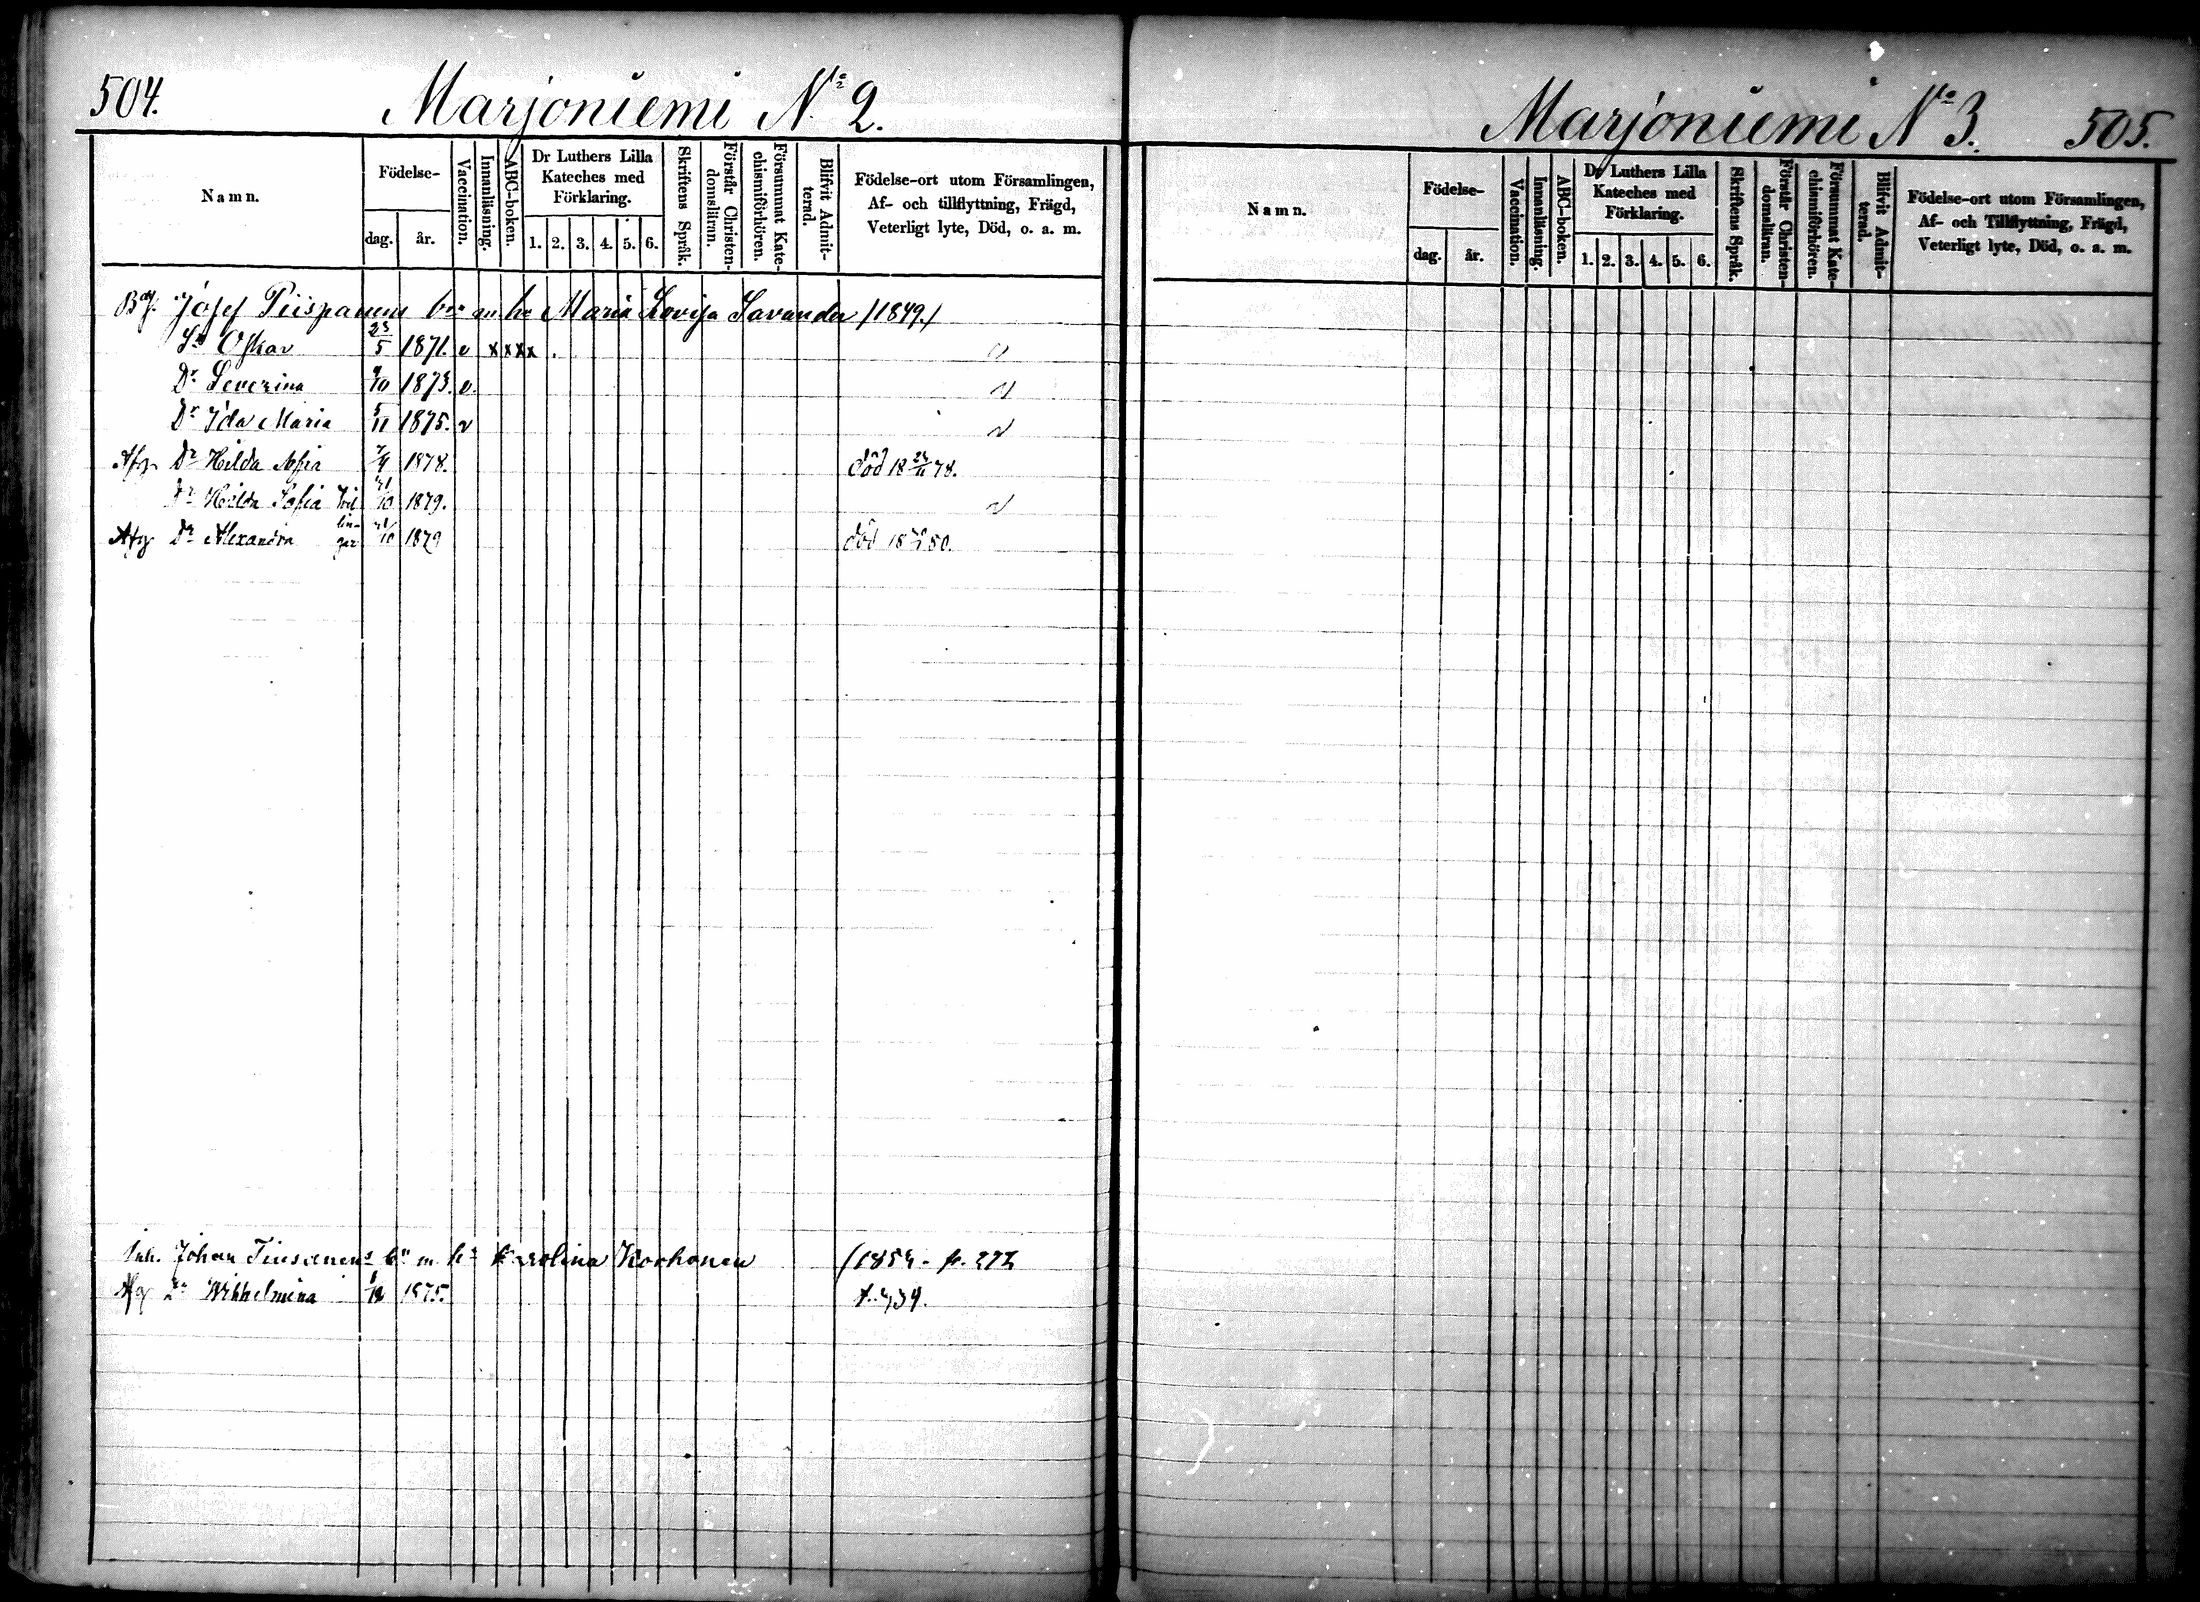 504. Marjoniemi No 2.
Namn.
Födelse-
dag. år.
Vaccination.
Innanläsning.
ABC-boken.
Dr Luthers Lilla
Kateches med
Förklaring.
1. 2. 3. 4. 5. 6.
Skriftens Språk.
Förstår Christen-
domsläran.
Försummat Kate-
chismiförhören.
Blifvit Admit-
terad.
Födelse-ort utom Församlingen,
Af- och tillflyttning, Frägd,
Veterligt lyte, Död, o. a. m.
Josef Piispanens bn m. hu Maria Lovisa Savander (1849.)
Sn Oskar 23/5 1871. v x x x x
Dr Severina 9/10 1873. v.
Dr Ida Maria 5/11 1875. v
Afg Dr Hilda Sofia 7/9 1878. död 18 24/11 78.
Dr Hilda Sofia Tvil 21/10 1879.
lin-
Afg Dr Alexandra gar 21/10 1879 död 18 80.
Inh. Johan Tiusanens bn m hu Karolina Korhonen
Afg Dr Wilhelmina 1875.
Marjoniemi No 3. 505.
Namn.
Födelse-
dag. år.
Vaccination.
Innanläsning.
ABC-boken.
Dr Luthers Lilla
Kateches med
Förklaring.
1. 2. 3. 4. 5. 6.
Skriftens Språk.
Förstår Christen-
domsläran.
Försummat Kate-
chismiförhören.
Blifvit Admit-
terad.
Födelse-ort utom Församlingen,
Af- och Tillflyttning, Frägd,
Veterligt lyte, Död, o. a. m.